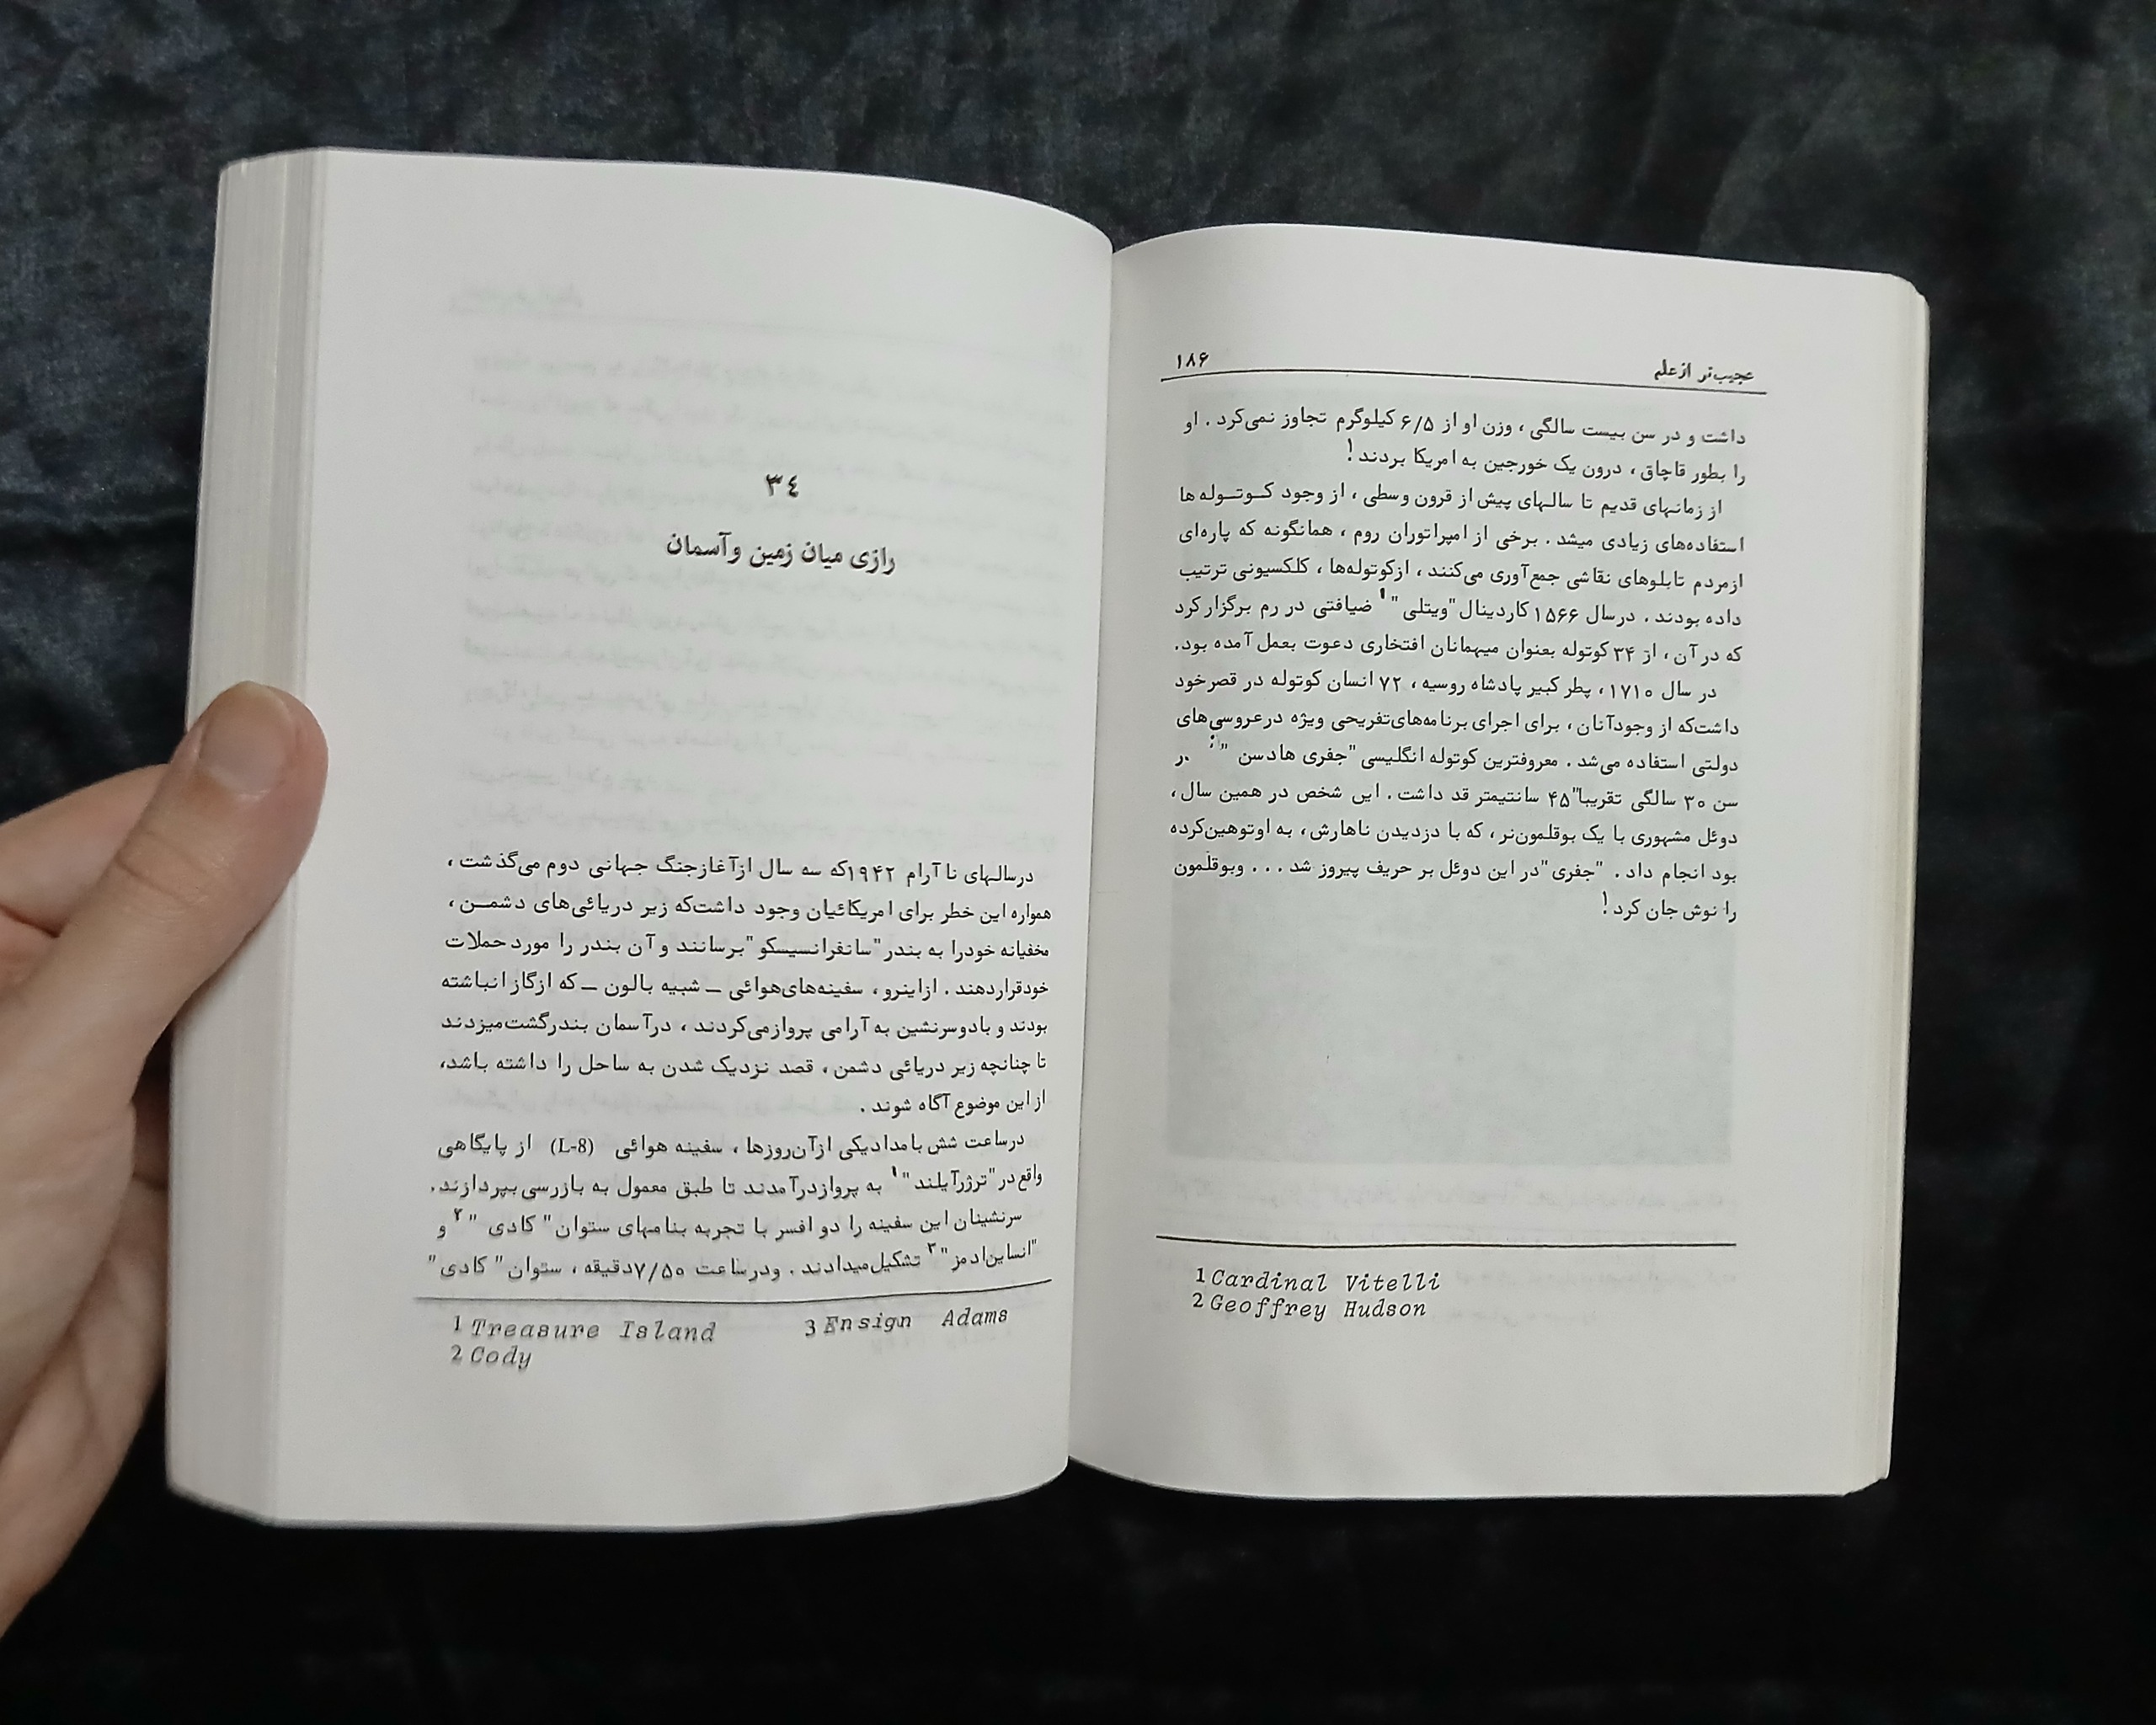 عجیب‌تر از علم ۱۸۶
داشت و در سن بیست سالگی ، وزن او از ۶/۵ کیلوگرم تجاوز نمی‌کرد . او
را بطور قاچاق ، درون یک خورجین به امریکا بردند !
از زمانهای قدیم تا سالهای پیش از قرون وسطی ، از وجود کـوتـوله ها
استفاده‌های زیادی میشد . برخی از امپراتوران روم ، همانگونه که پاره‌ای
ازمردم تابلوهای نقاشی جمع‌آوری می‌کنند ، ازکوتوله‌ها ، کلکسیونی ترتیب
داده بودند . درسال ۱۵۶۶ کاردینال "ویتلی "۱ ضیافتی در رم برگزار کرد
که در آن ، از ۳۴ کوتوله بعنوان میهمانان افتخاری دعوت بعمل آمده بود.
در سال ۱۷۱۰ ، پطر کبیر پادشاه روسیه ، ۷۲ انسان کوتوله در قصرخود
داشت‌که از وجودآنان ، برای اجرای برنامه‌های‌تفریحی ویژه درعروسی‌های
دولتی استفاده می‌شد . معروفترین کوتوله انگلیسی "جفری هادسن "
سن ۳۰ سالگی تقریبا"۴۵ سانتیمتر قد داشت . این شخص در همین سال ،
دوئل مشهوری با یک بوقلمون‌نر ، که با دزدیدن ناهارش ، به اوتوهین‌کرده
بود انجام داد . "جفری "در این دوئل بر حریف پیروز شد . . . وبوقلمون
را نوش جان کرد !
1 Cardinal Vitelli
2 Geoffrey Hudson
۳٤
رازی میان زمین وآسمان
درسالهای نا آرام ۱۹۴۲که سه سال ازآغازجنگ جهانی دوم می‌گذشت ،
همواره این خطر برای امریکائیان وجود داشت‌که زیر دریائی‌های دشمـن ،
مخفیانه خودرا به بندر "سانفرانسیسکو "برسانند و آن بندر را مورد حملات
خودقراردهند . ازاینرو ، سفینه‌های‌هوائی ــ شبیه بالون ــ که ازگاز انباشته
بودند و بادوسرنشین به آرامی پروازمی‌کردند ، درآسمان بندرگشت‌میزدند
تا چنانچه زیر دریائی دشمن ، قصد نزدیک شدن به ساحل را داشته باشد،
از این موضوع آگاه شوند .
درساعت شش بامدادیکی ازآن‌روزها ، سفینه هوائی (L-8) از پایگاهی
واقع در "ترژرآیلند "۱ به پروازدرآمدند تا طبق معمول به بازرسی‌بپردازند.
سرنشینان این سفینه را دو افسر با تجربه بنامهای ستوان" کادی "۲ و
"انساین‌ادمز "۳ تشکیل‌میدادند . ودرساعت ۷/۵۰دقیقه ، ستوان " کادی "
1 Treasure Island 3 Ensign Adams
2 Cody